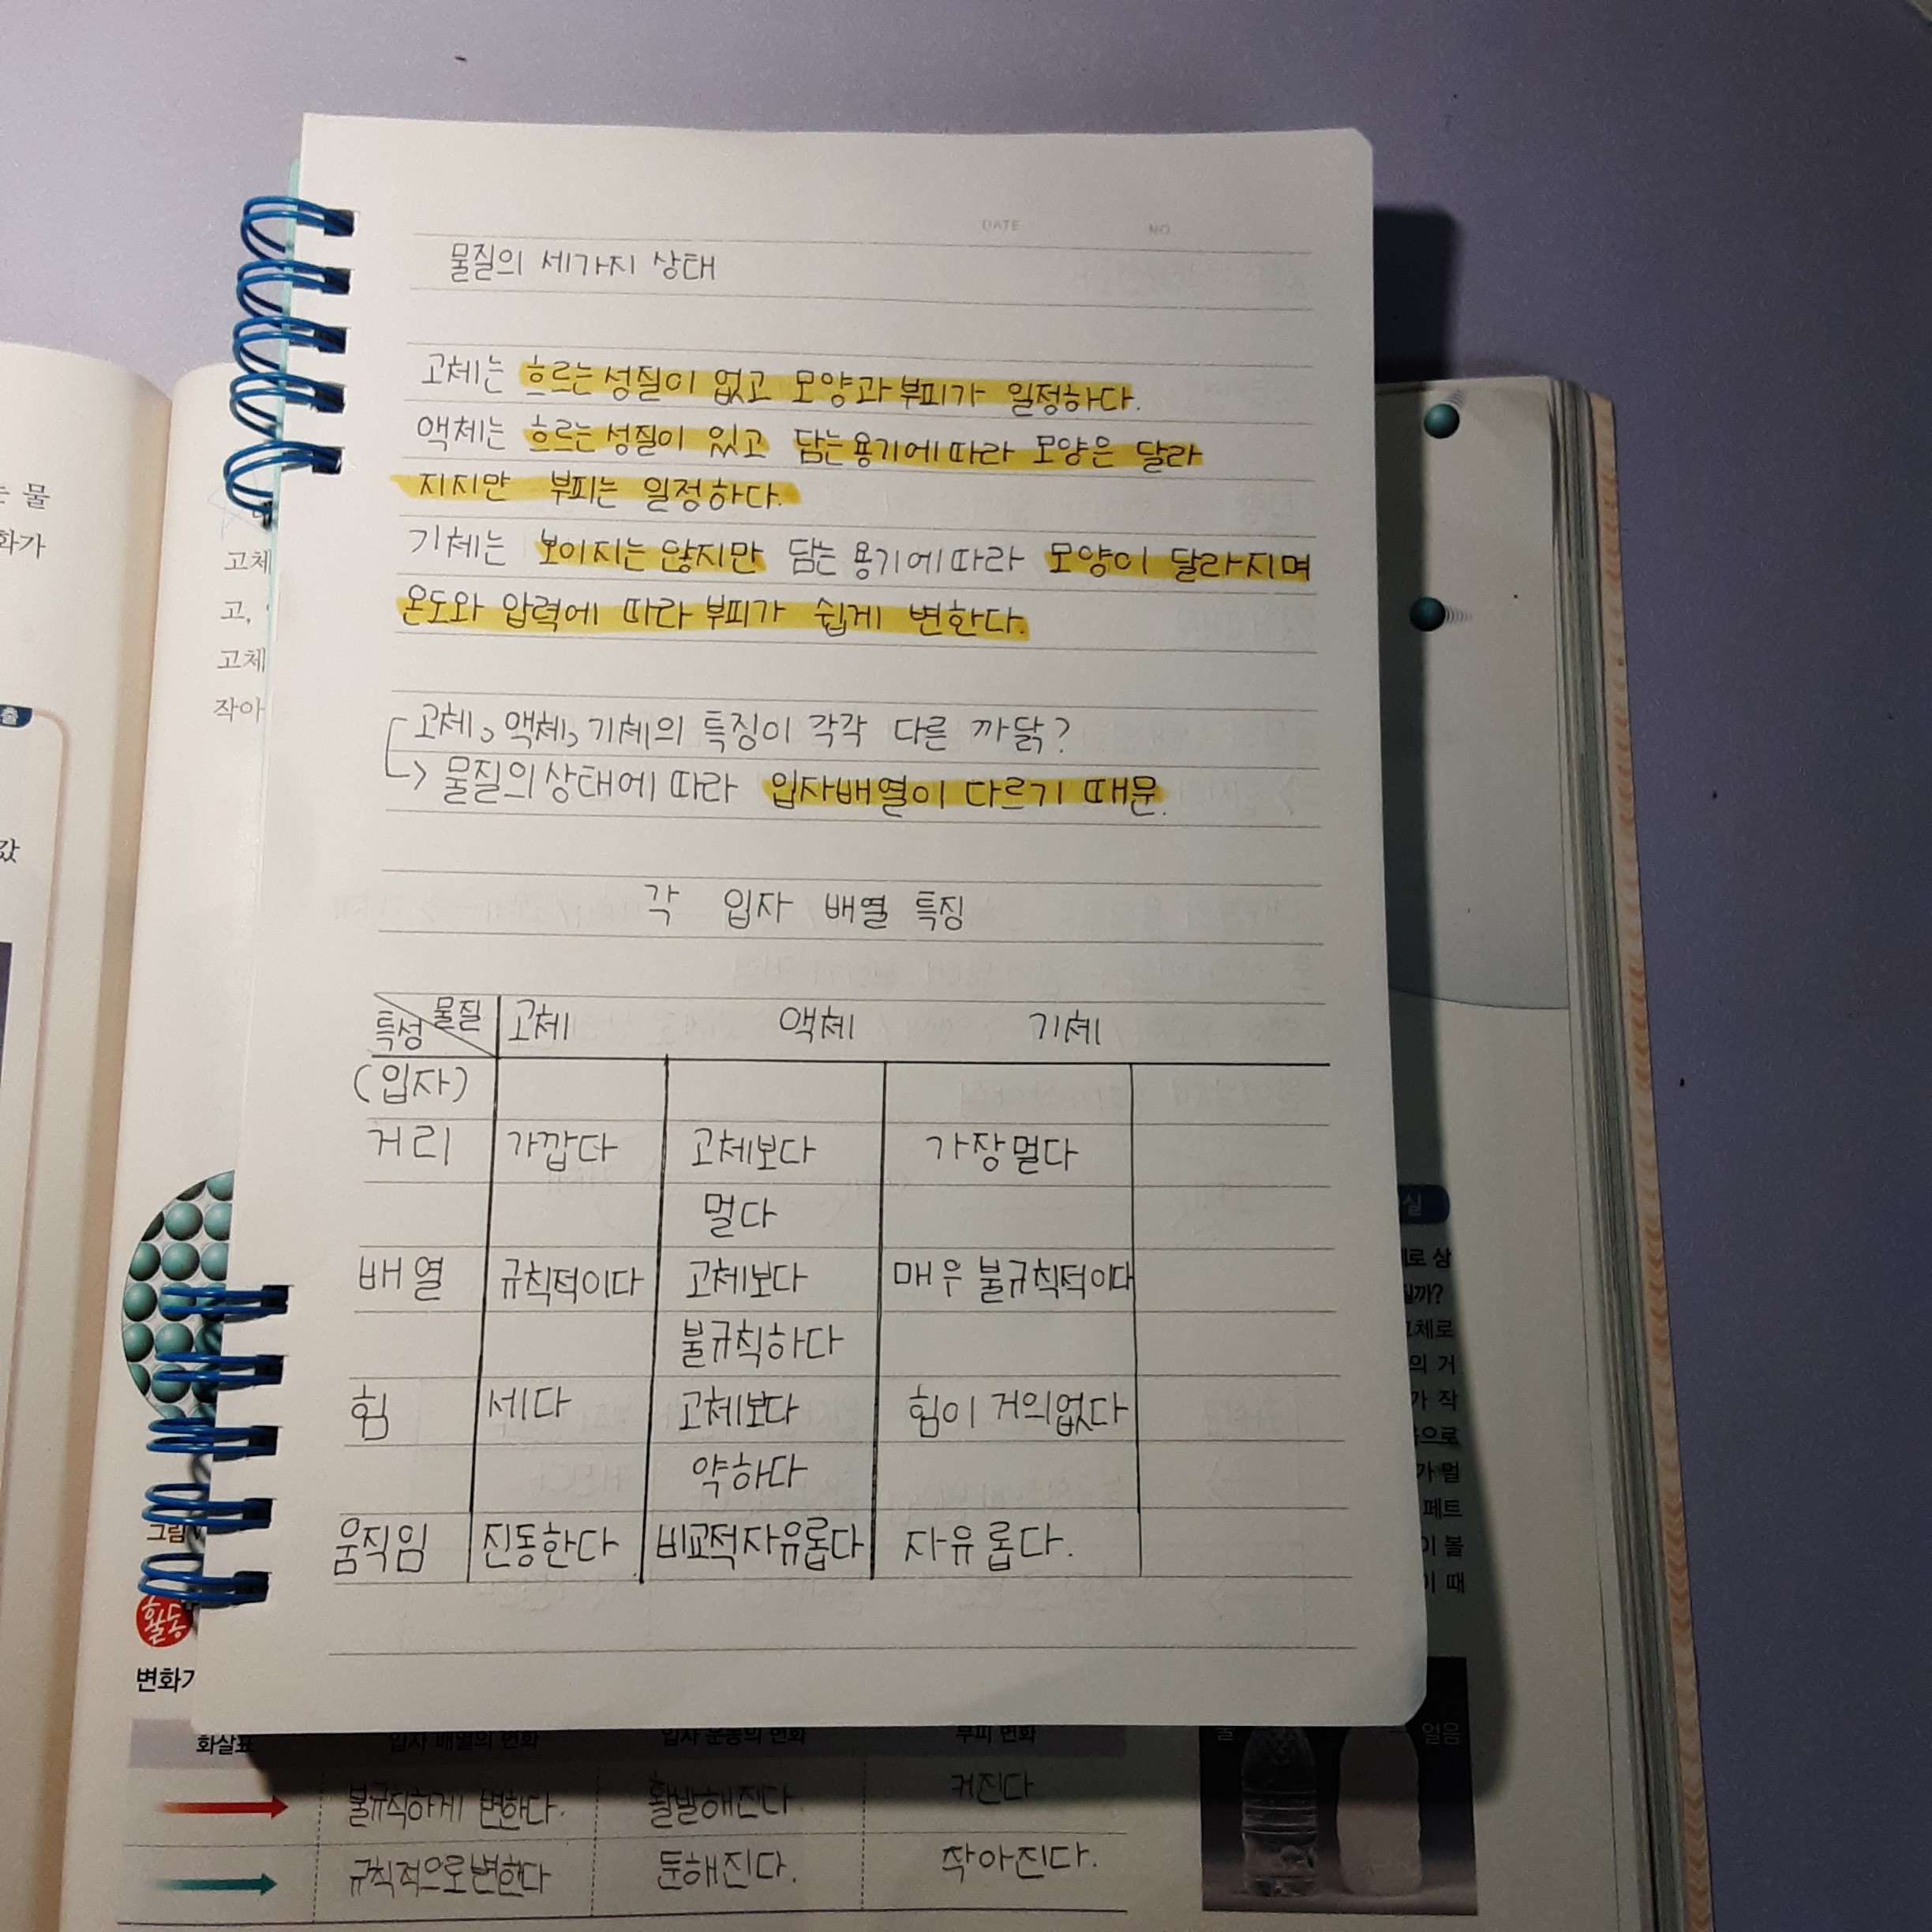 DATE NO
물질의 세가지 상태
고체는 흐르는 성질이 없고 모양과 부피가 일정하다.
액체는 흐르는 성질이 있고 담는 용기에 따라 모양은 달라
지지만 부피는 일정하다.
기체는 보이지는 않지만 담는 용기에 따라 모양이 달라지며
온도와 압력에 따라 부피가 쉽게 변한다.
고체, 액체, 기체의 특징이 각각 다른 까닭?
→ 물질의 상태에 따라 입자배열이 다르기 때문.
각 입자 배열 특징
특성 물질 고체 액체 기체
(입자)
거리 가깝다 고체보다 가장멀다
멀다
배열 규칙적이다 고체보다 매우 불규칙적이다
불규칙하다
힘 세다 고체보다 힘이 거의없다
약하다
움직임 진동한다 비교적자유롭다 자유롭다.
물
화가
값
고체
고,
고체
작아
출
실
로 상
질까?
고체로
의 거
가 작
으로
가 멀
페트
이 볼
이 때
그림
활동
변화
화살표 입자 배열의 변화 입자 운동의 변화 부피 변화
불규칙하게 변한다. 활발해진다. 커진다
규칙적으로변한다 둔해진다. 작아진다.
물 얼음